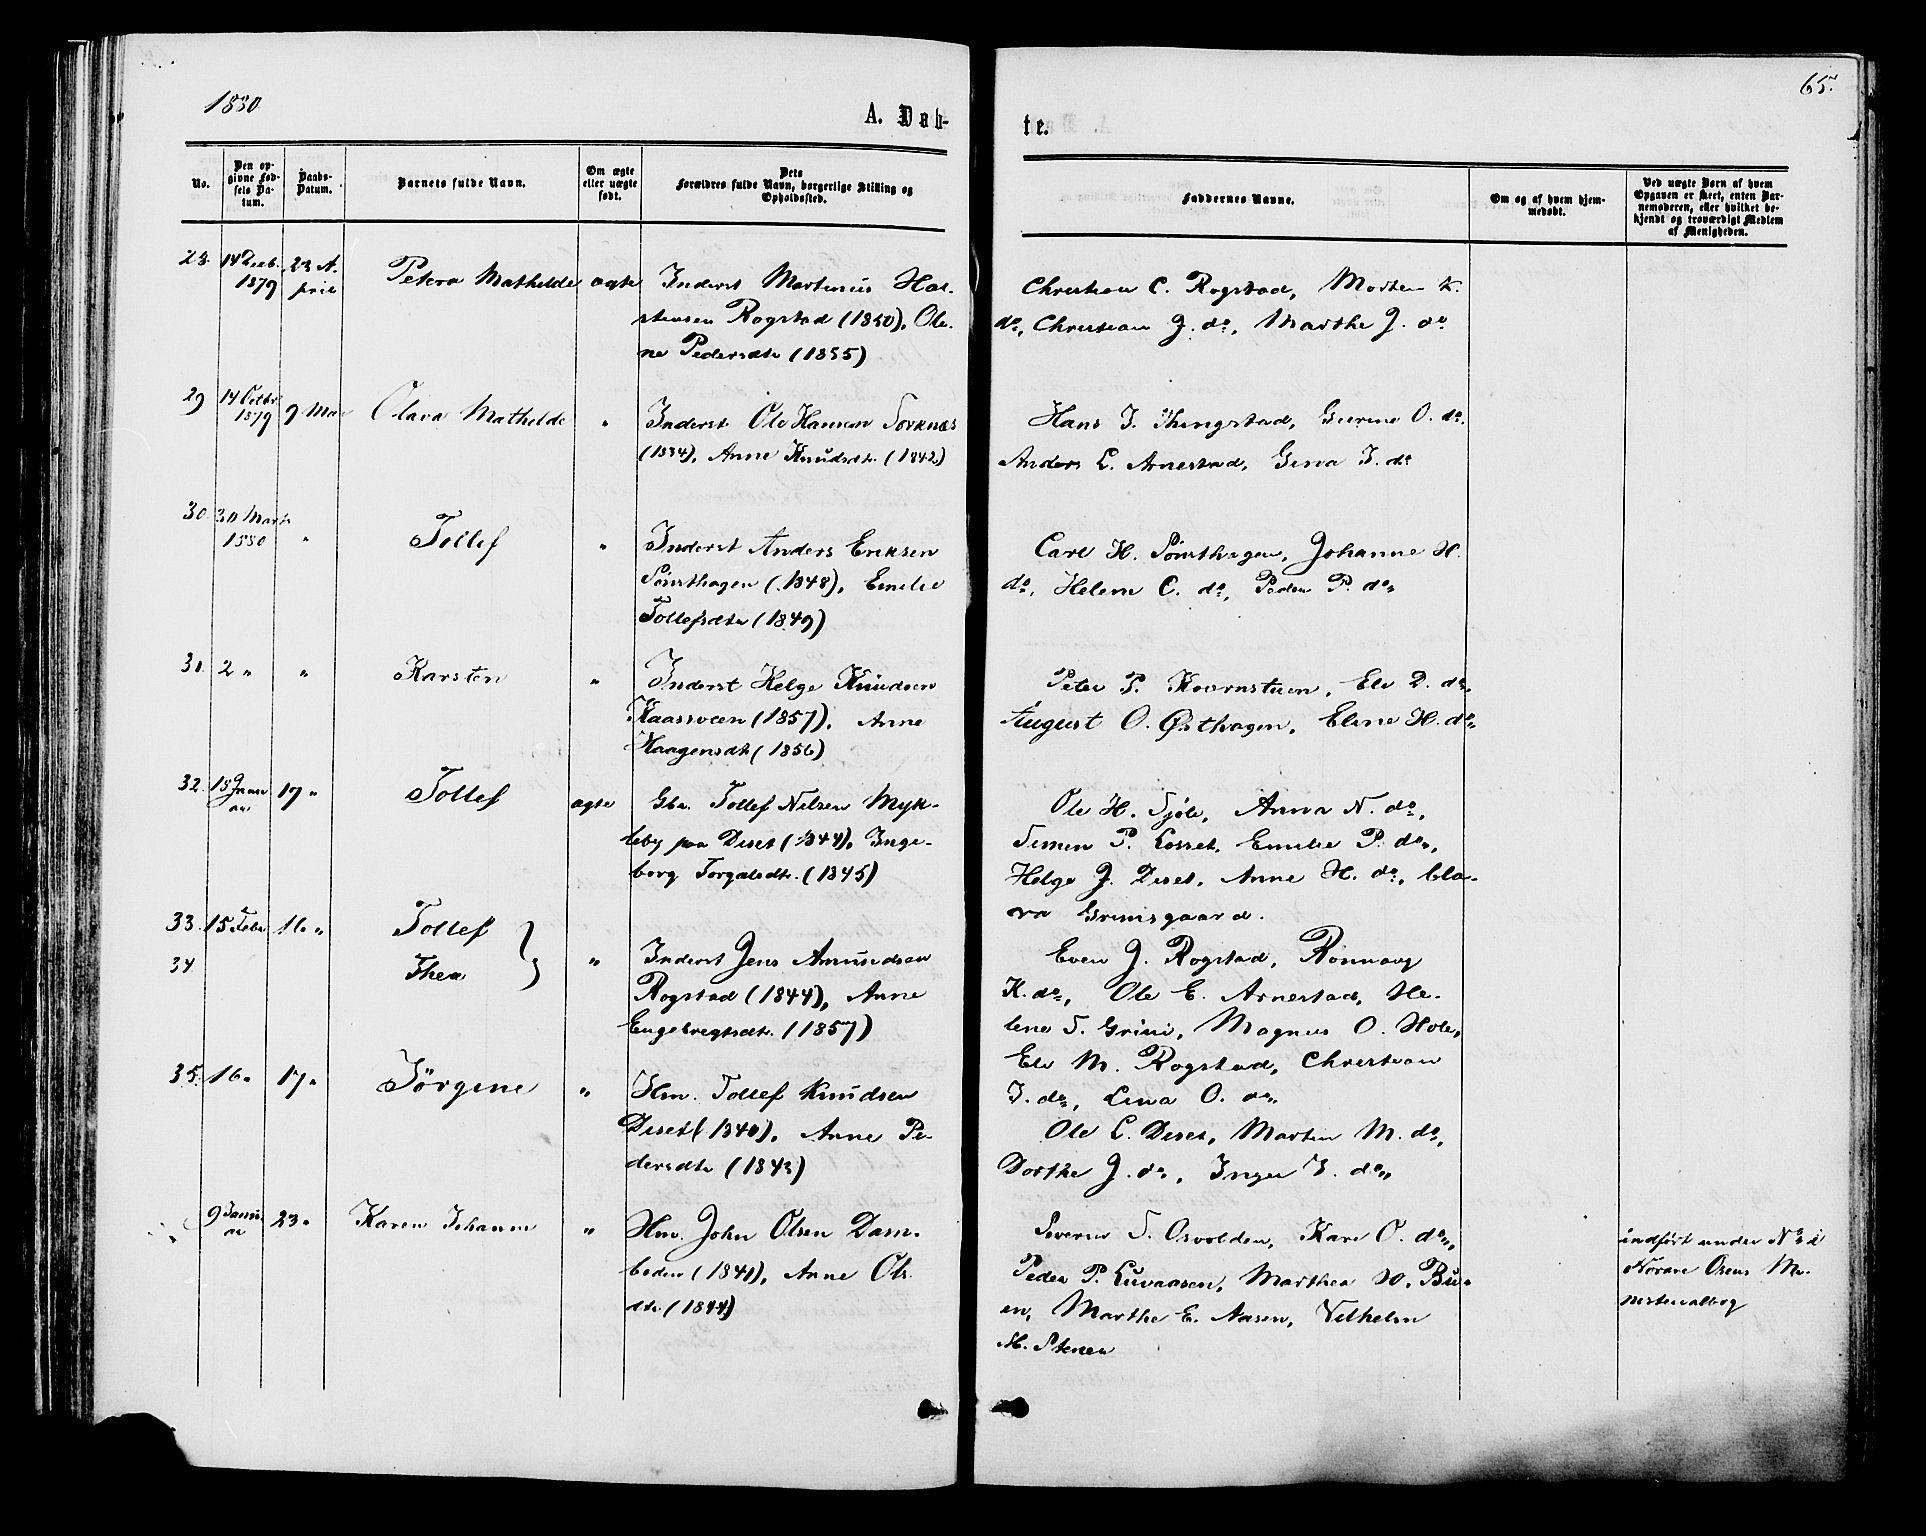 1880
65.
A. Døb-
te.
No.
Den op-
givne Fød-
sels Da-
tum.
Daabs-
Datum.
Barnets fulde Navn.
Om ægte
eller uægte
født.
Dets
Forældres fulde Navn, borgerlige Stilling og
Opholdssted.
Faddernes Navne.
Om og af hvem hjem-
medøbt.
Ved uægte Børn af hvem
Opgaven er skeet, enten Bar-
nemoderen, eller hvilket be-
kjendt og troværdigt Medlem
af Menigheden.
28. 14 Decb. 1879 23 April Petera Mathilde ægte Inderst Martinius Hal-
stensen Rogstad (1850), Ole-
ne Pedersdtr (1855)
Christian C. Rogstad, Morten K.
do, Christian J. do, Marthe J. do
29 14 Octbr 1879 9 Mai Olava Mathilde " Inderst Ole Hansen Sorknæs
(1834), Anne Knudsdtr. (1842)
Hans J. Thingstad, Gurine O. do.
Anders L. Arnestad, Gina J. do
30. 30 Marts 1880 " Tollef " Inderst Anders Eriksen
Sørsthagen (1848), Emilie
Tollefsdtr (1849)
Carl H. Sørsthagen, Johanne H.
do, Helene C. do, Peder P. do,
31. 2 " " Karsten " Inderst Helge Knudsen
Kaasveen (1857), Anne
Haagensdtr (1856)
Peter P. Kværnstuen, Eli D. do,
August O. Østhagen, Eline H. do,
32. 18 Januar 17 " Tollef ægte Gbr. Tollef Nilsen Myk-
leby paa Diset (1844), Inge-
borg Torgalsdtr. (1845)
Ole H. Sjøli, Anna N. do,
Simen P. Losset, Emilie P. do,
Helge J. Diset, Anne H. do, Cla-
ra Grimsgaard.
33. 15 Febr 16 " Tollef
34 Thea " Inderst Jens Amundsen
Rogstad (1844), Anne
Engebregtsdtr. (1857)
Even J. Rogstad, Rønnaug
K. do, Ole E. Arnestad, He-
lene S. Grini, Magnus O. Hole,
Eli M. Rogstad, Christian
J. do, Lina O. do,
35. 16 " 17 " Jørgine " Hm. Tollef Knudsen
Diset (1840), Anne Pe-
dersdtr (1843)
Ole L. Diset, Martin M. do,
Dorthe J. do, Inger J. do,
9 Januar 23 " Karen Johanne " Hm. John Olsen Dam-
beden (1841), Anne Ols-
dtr (1844)
Severin S. Osvolden, Kari O. do,
Peder P. Luvaasen, Marthea H. Bu-
en, Marthe E. Aasen, Vilhelm
H. Stener
indført under No 2 i
Nordre Osens Mi-
nisterialbog